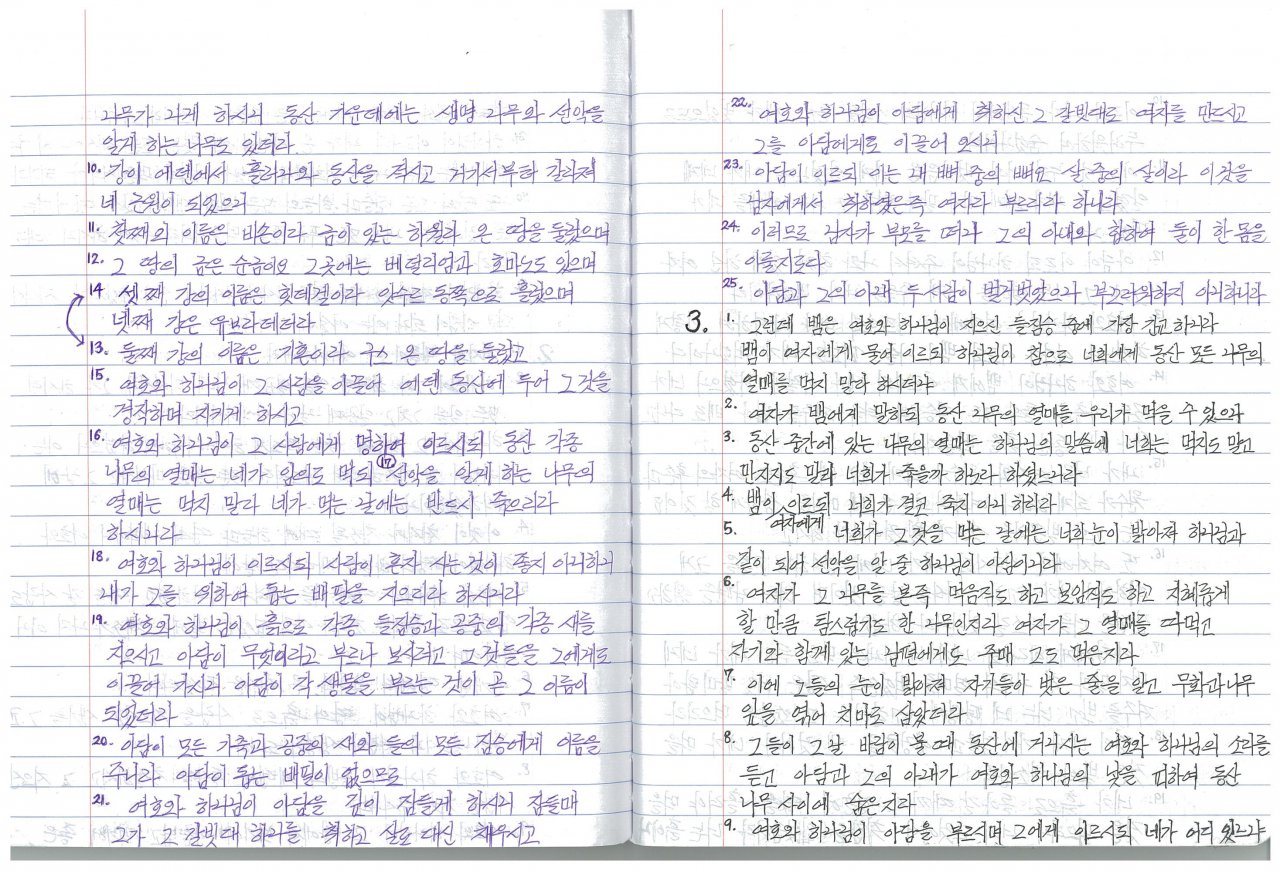 나무가 나게 하시니 동산 가운데에는 생명 나무와 선악을
알게 하는 나무도 있더라
10. 강이 에덴에서 흘러나와 동산을 적시고 거기서부터 갈라져
네 근원이 되었으니
11. 첫째의 이름은 비손이라 금이 있는 하윌라 온 땅을 둘렀으며
12. 그 땅의 금은 순금이요 그곳에는 베델리엄과 호마노도 있으며
14 셋째 강의 이름은 힛데겔이라 앗수르 동쪽으로 흘렀으며
넷째 강은 유브라데더라
13. 둘째 강의 이름은 기혼이라 구스 온 땅을 둘렀고
15. 여호와 하나님이 그 사람을 이끌어 에덴 동산에 두어 그것을
경작하며 지키게 하시고
16. 여호와 하나님이 그 사람에게 명하여 이르시되 동산 각종
나무의 열매는 네가 임의로 먹되 17 선악을 알게 하는 나무의
열매는 먹지 말라 네가 먹는 날에는 반드시 죽으리라
하시니라
18. 여호와 하나님이 이르시되 사람이 혼자 사는 것이 좋지 아니하니
내가 그를 위하여 돕는 배필을 지으리라 하시니라
19. 여호와 하나님이 흙으로 각종 들짐승과 공중의 각종 새를
지으시고 아담이 무엇이라고 부르나 보시려고 그것들을 그에게로
이끌어 가시니 아담이 각 생물을 부르는 것이 곧 그 이름이
되었더라
20. 아담이 모든 가축과 공중의 새와 들의 모든 짐승에게 이름을
주니라 아담이 돕는 배필이 없으므로
21. 여호와 하나님이 아담을 깊이 잠들게 하시니 잠들매
그가 그 갈빗대 하나를 취하고 살로 대신 채우시고
22. 여호와 하나님이 아담에게 취하신 그 갈빗대로 여자를 만드시고
그를 아담에게로 이끌어 오시니
23. 아담이 이르되 이는 내 뼈 중의 뼈요 살 중의 살이라 이것을
남자에게서 취하였은즉 여자라 부르리라 하니라
24. 이러므로 남자가 부모를 떠나 그의 아내와 합하여 둘이 한 몸을
이룰지로다
25. 아담과 그의 아내 두 사람이 벌거벗었으나 부끄러워하지 아니하니라
3. 1. 그런데 뱀은 여호와 하나님이 지으신 들짐승 중에 가장 간교하니라
뱀이 여자에게 물어 이르되 하나님이 참으로 너희에게 동산 모든 나무의
열매를 먹지 말라 하시더냐
2. 여자가 뱀에게 말하되 동산 나무의 열매를 우리가 먹을 수 있으나
3. 동산 중간에 있는 나무의 열매는 하나님의 말씀에 너희는 먹지도 말고
만지지도 말라 너희가 죽을까 하노라 하셨느니라
4. 뱀이 이르되 너희가 결코 죽지 아니 하리라
여자에게
5. 너희가 그것을 먹는 날에는 너희 눈이 밝아져 하나님과
같이 되어 선악을 알 줄 하나님이 아심이니라
6. 여자가 그 나무를 본즉 먹음직도 하고 보암직도 하고 지혜롭게
할 만큼 탐스럽기도 한 나무인지라 여자가 그 열매를 따먹고
자기와 함께 있는 남편에게도 주매 그도 먹은지라
7. 이에 그들의 눈이 밝아져 자기들이 벗은 줄을 알고 무화과나무
잎을 엮어 치마로 삼았더라
8. 그들이 그 날 바람이 불 때 동산에 거니시는 여호와 하나님의 소리를
듣고 아담과 그의 아내가 여호와 하나님의 낯을 피하여 동산
나무 사이에 숨은지라
9. 여호와 하나님이 아담을 부르시며 그에게 이르시되 네가 어디 있느냐